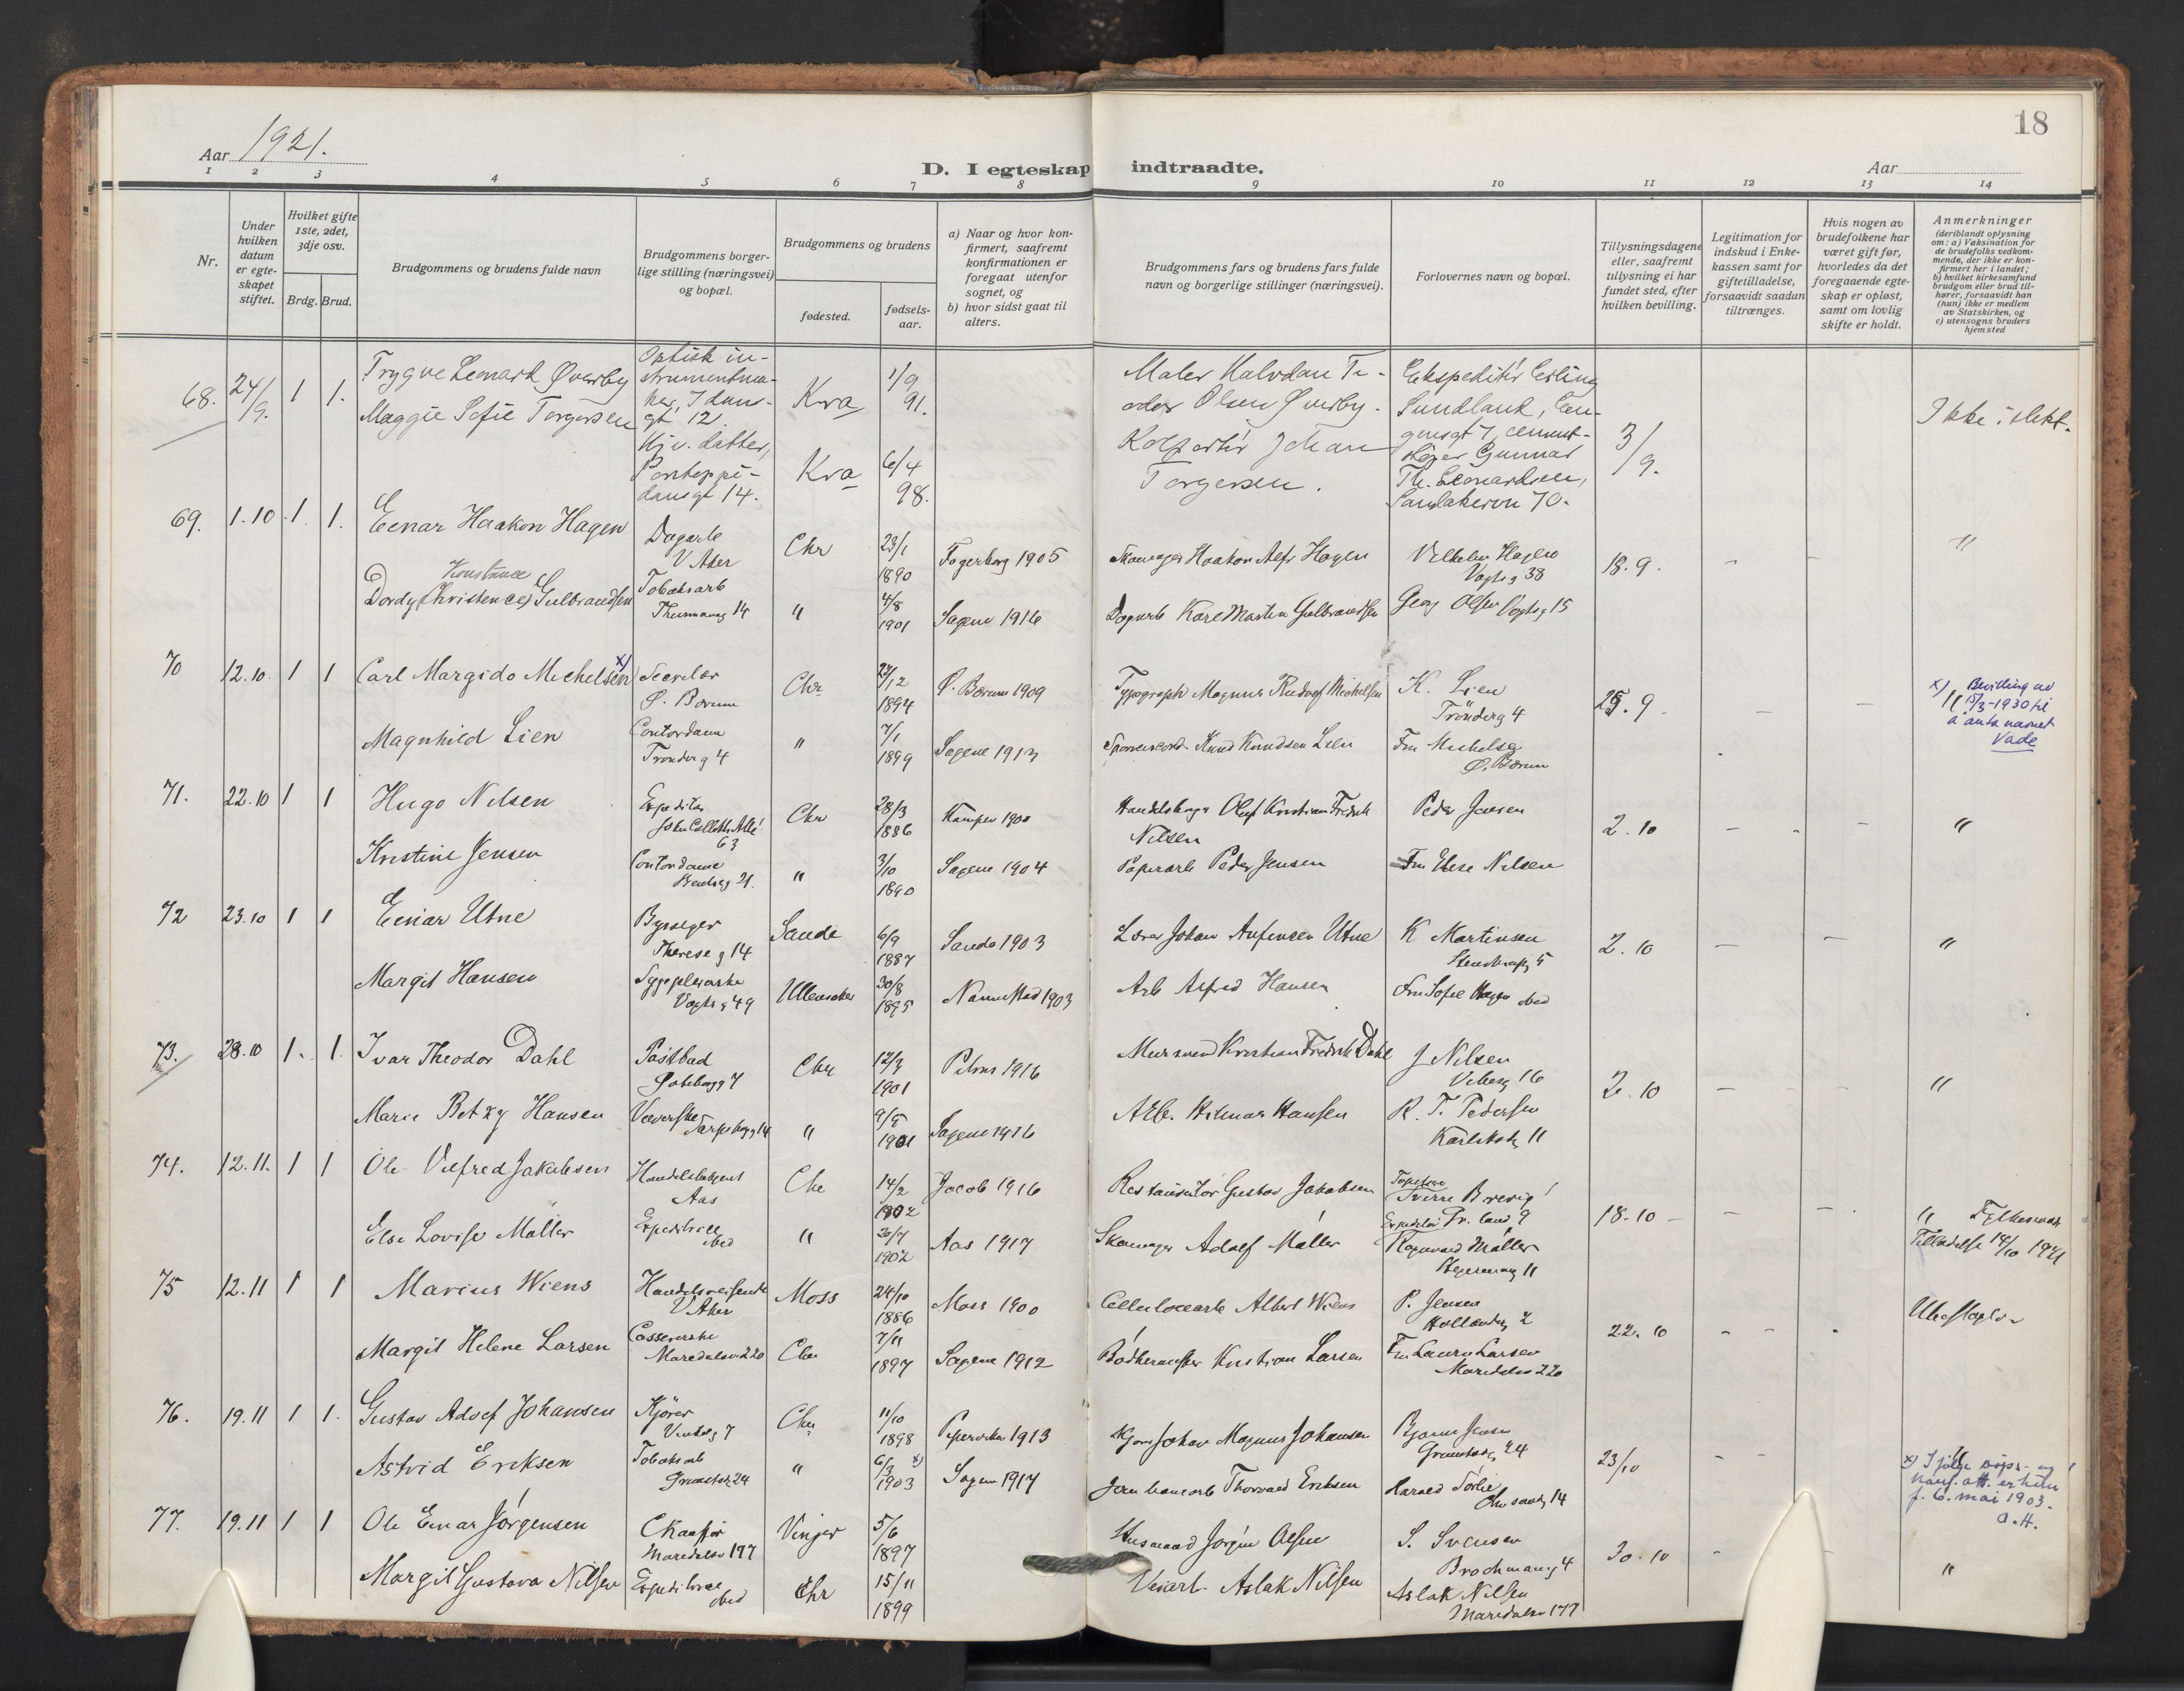 18
Aar 1921.
D. I egteskap indtraadte.
Aar
1 2 3 4 5 6 7 8 9 10 11 12 13 14
Nr.
Under hvilken datum er egteskapet stiftet.
Hvilket gifte 1ste, 2det, 3dje osv.
Brdg. Brud.
Brudgommens og brudens fulde navn
Brudgommens borgerlige stilling (næringsvei) og bopæl.
Brudgommens og brudens
fødested.
fødselsaar.
a) Naar og hvor konfirmert, saafremt konfirmationen er foregaat utenfor sognet, og
b) hvor sidst gaat til alters.
Brudgommens fars og brudens fars fulde navn og borgerlige stillinger (næringsvei).
Forlovernes navn og bopæl.
Tillysningsdagene eller, saafremt tillysning ei har fundet sted, efter hvilken bevilling.
Legitimation for indskud i Enkekassen samt for giftetilladelse, forsaavidt saadan tiltrænges.
Hvis nogen av brudefolkene har været gift før, hvorledes da det foregaaende egteskap er opløst, samt om lovlig skifte er holdt.
Anmerkninger
(deriblandt oplysning om: a) Vaksination for de brudefolks vedkommende, der ikke er konfirmert her i landet; b) hvilket kirkesamfund brudgom eller brud tilhører, forsaavidt han (hun) ikke er medlem av Statskirken, og c) utensogns bruders hjemsted
68. 24/9. 1 1. Trygve Leonard Øverby
Optisk instrumentmaker, Idunsgt 12.
Kra 1/9 91.
Maler Halvdan Teodor Olsen Øverby.
Ekspeditør Erling Sundland,
3/9.
Ikke i slekt.
Maggie Sofie Torgersen
Hjv. datter, Pontoppidansgt 14.
Kra 6/4 98.
Kolportør Johan Torgersen.
Gunnar Th. Leonardsen, Sandakervn 70.
69. 1.10. 1. 1. Einar Haakon Hagen
Dagarb V Aker
Chr 23/1 1890 Fagerborg 1905
Skomager Haakon Alfr Hagen
Vilhelm Hagen Vogtsg 38
18.9. - - "
Konstance
Dordy (Christence) Gulbrandsen
Tobaksarb Thurmannsg 14
" 4/8 1901 Sagene 1916
Dagarb Karl Martin Gulbrandsen
Georg Olsen Vogtsg 15
70 12.10. 1 1 Carl Margido Michelsen x)
Secretær Ø. Bærum
Chr. 27/12 1894 Ø. Bærum 1909
Typograph Magnus Rudolf Michelsen
K. Lien Trönderg 4
25.9. - - "
x) Bevilling av 15/3-1930 til å anta navnet Vade
Magnhild Lien
Contordame Trönderg 4
" 7/1 1899 Sagene 1913
Knud Knudsen Lien
Fru Michelsen Ø. Bærum
71. 22.10 1 1 Hugo Nilsen
Expeditør John Colletts Allé 63
Chr 28/3 1886 Kampen 1900
Oluf Kristian Fredrik Nilsen
Peder Jensen
2.10 - - "
Kristine Jensen
Contordame Bentseg 21.
" 3/10 1890 Sagene 1904
Papirarb Peder Jensen
Fru Else Nilsen
72 23.10 1 1 Einar Utne
Therese g 14
Sande 6/9 1887 Sande 1903
Lærer Johan Anfinsen Utne
K Martinsen
2.10 - - "
Margit Hansen
Sygepleierske Vogtsg 49
Ullensaker 30/8 1895 Nannestad 1903
Arb Alfred Hansen
Fru Sofie Hagen ibid
73. 28.10 1. 1. Ivar Theodor Dahl
Postbud Göteborgg 7
Chr 12/3 1901 Petrus 1916
Murmand Kristian Fredrik Dahl
J Nilsen Vibesg 16
2.10 - - "
Marie Betzy Hansen
Væverske Sarpsborgg 14
" 9/5 1901 Sagene 1916
Arb. Hilmar Hansen
R. T. Pedersen Karlstadg 11
74. 12.11. 1 1 Ole Vilfred Jakobsen
Handelsbetjent Aas
Chr 14/2 1902 Jacob 1916
Restauratør Gustav Jakobsen
Tapetserer Sverre Brevig
18.10 - - "
Fylkesmands Tilladelse 14/10 1921
Else Lovise Møller
Expeditrice ibid
" 30/7 1902 Aas 1917
Skomager Adolf Møller
Ragnvald Møller 11
75 12.11 1 1 Marius Wiens
Handelsreisende V Aker
Moss 24/10 1886 Moss 1900
Cellulosearb Albert Wiens
P. Jensen Hollenderg 2
22.10 - - -
Ubeslægtet
Margit Helene Larsen
Casserske Maridalsv 220
Chr 7/11 1897 Sagene 1912
Bödkermester Kristian Larsen
Fru Laura Larsen Maridalsv 220
76. 19.11 1 1. Gustav Adolf Johansen
Kjörer
Chr. 11/10 1898 Pipervika 1913
Kjører Johan Magnus Johansen
Bjarne Jensen Grimstadg 24
23/10 - -
Astrid Eriksen
Tobaksarb Grimstadg 24
" 6/3 x) 1903 Sagene 1917
Thorvald Eriksen
Harald Sörlie Chr sandg 14
x) Ifølge dåps- og konf. att. er hun f. 6. mai 1903. O.H.
77. 19.11 1 1 Ole Einar Jörgensen
Chauffør Maridalsv 177
Vinger 5/6 1897
Husmand Jørgen Olsen
S. Svensen Brochmansg 4
30.10 - - "
Margit Gustava Nilsen
Expeditrice ibid
Chr 15/11 1899
Aslak Nilsen
Aslak Nilsen Maridalsv 177